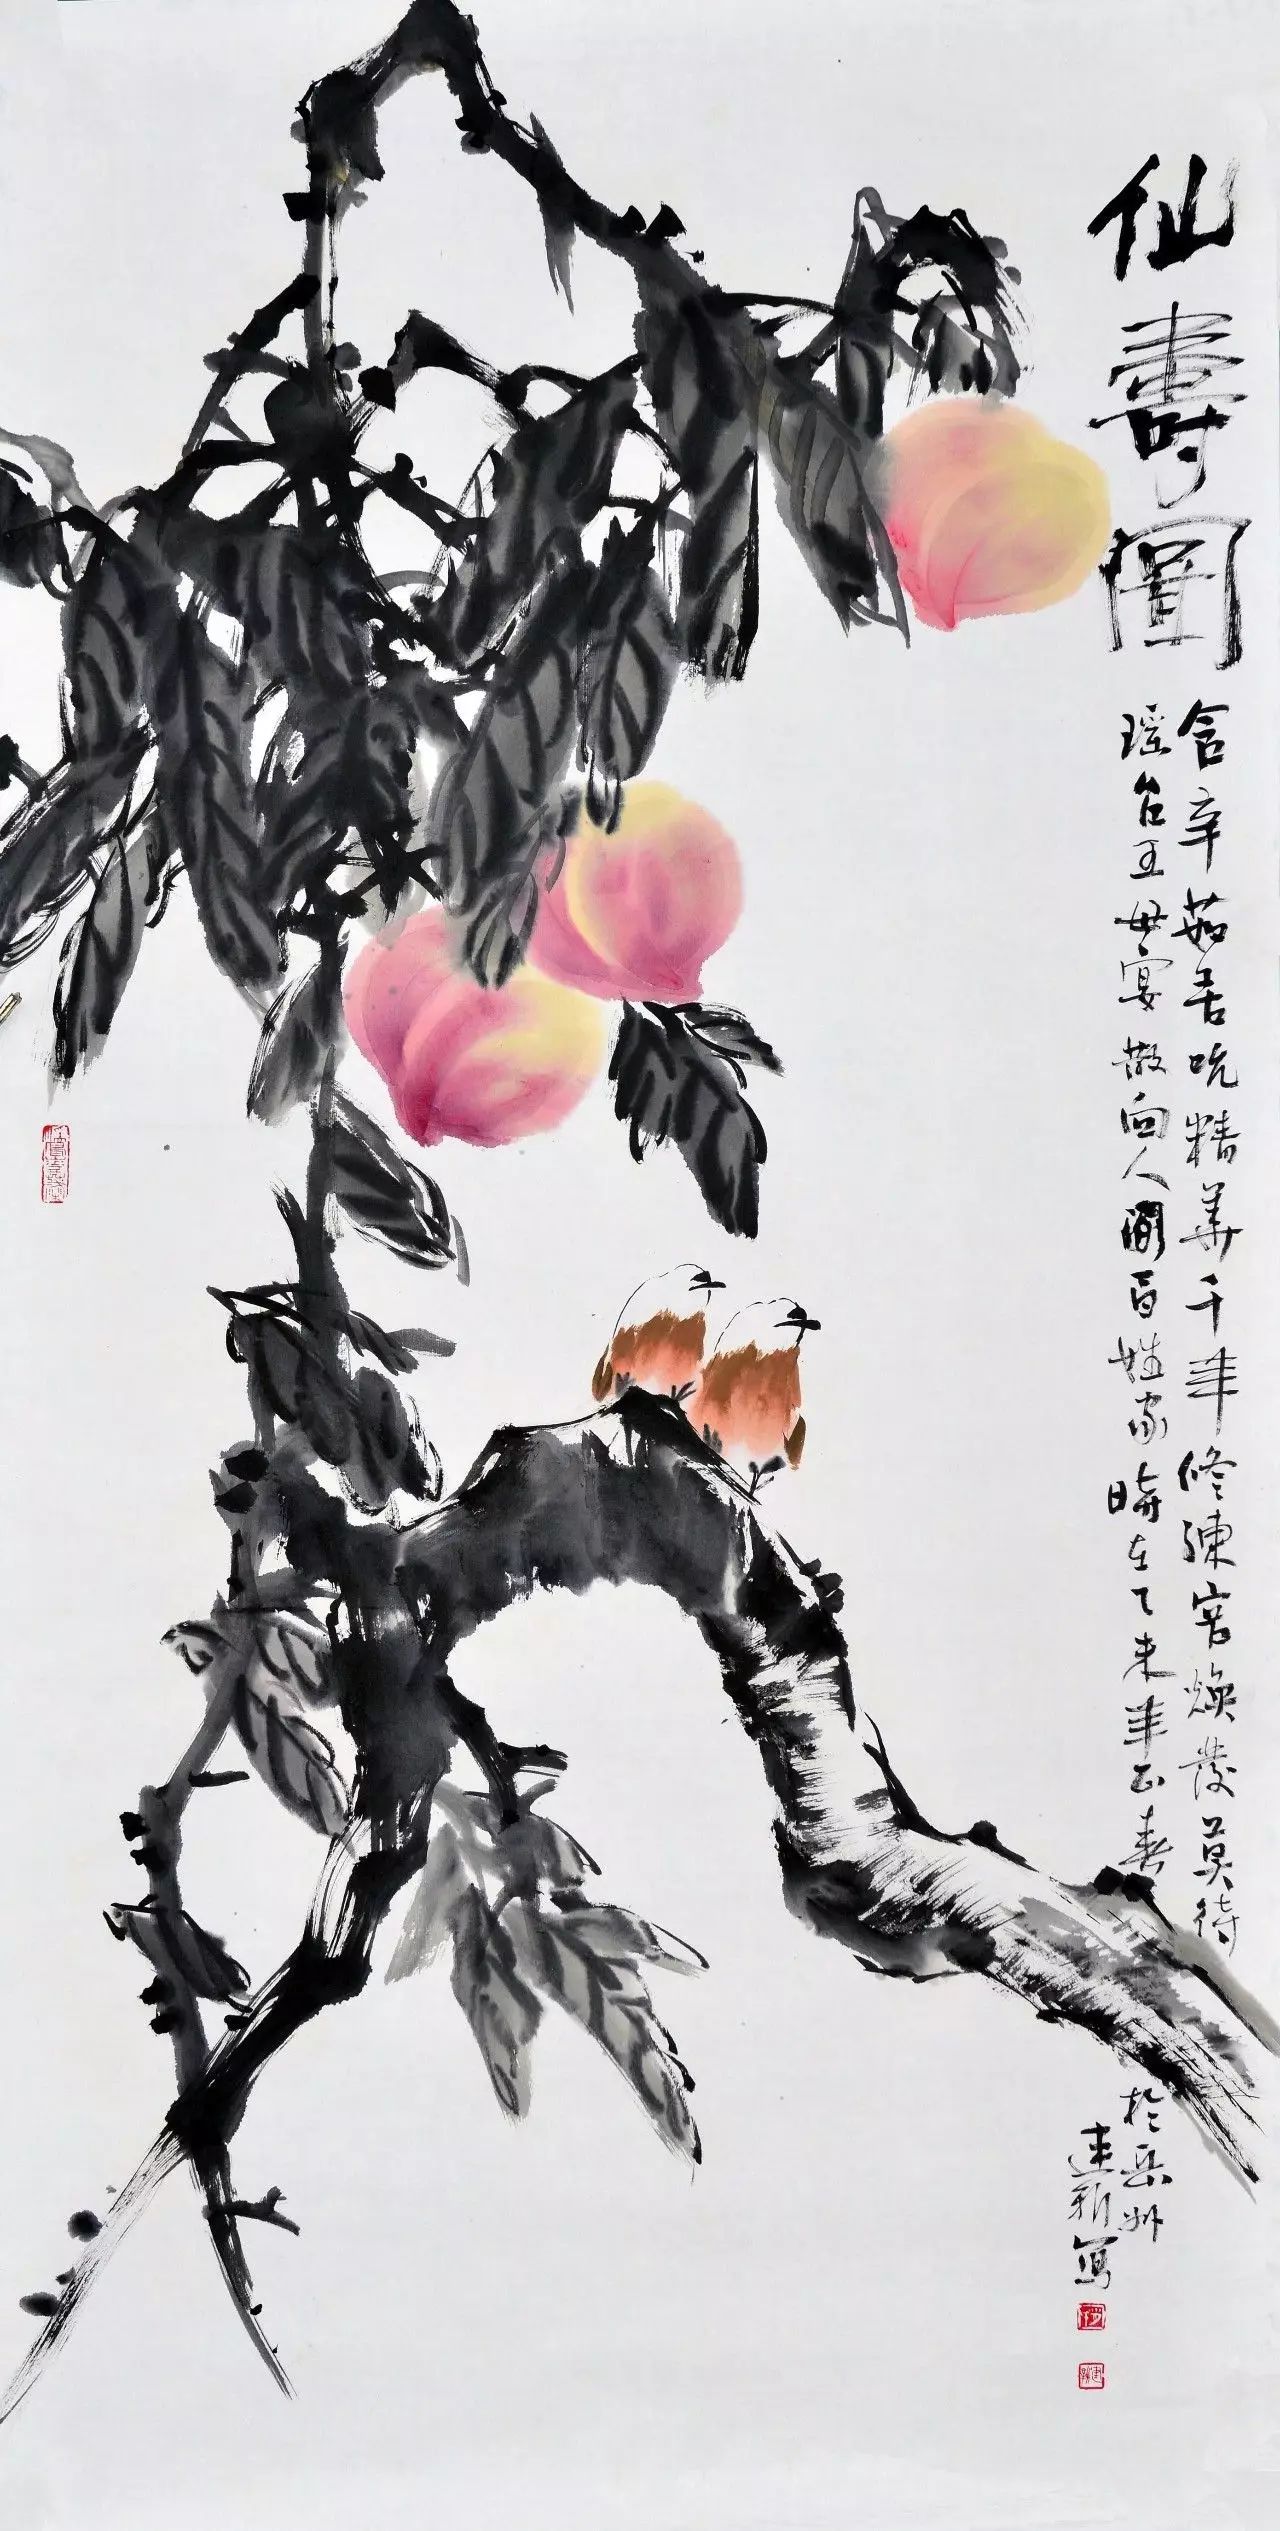 仙壽圖
含辛茹苦吮精華千年修練容煥發莫待
瑶台王母宴散向人間百姓家時在乙未年正春
於岳州
建新寫